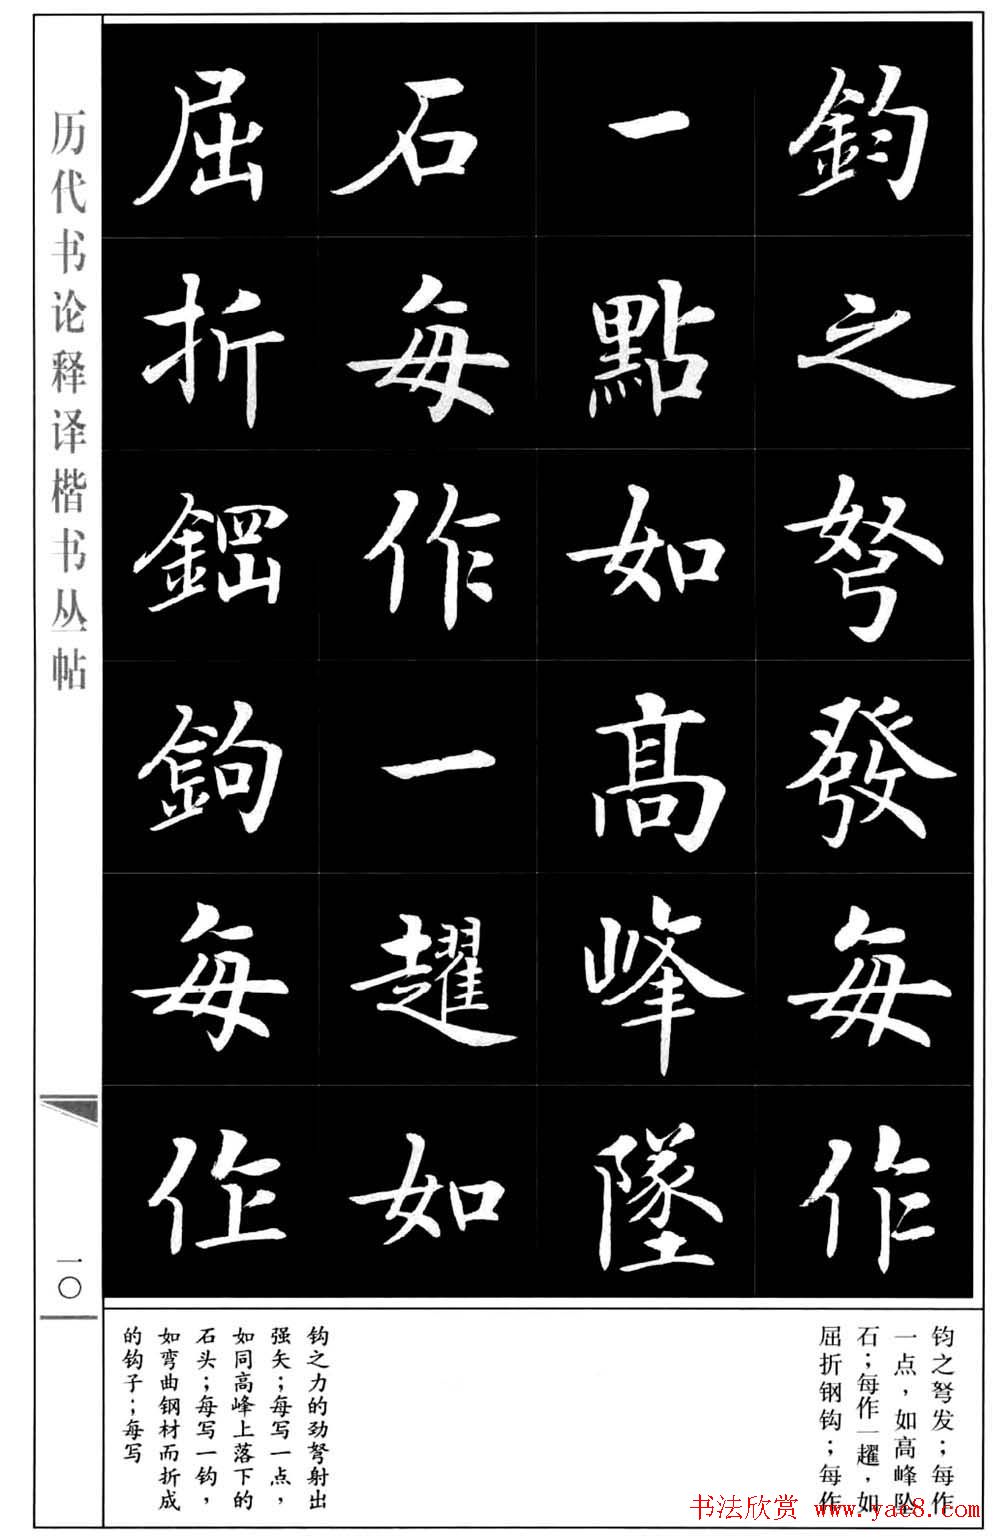 鈞之弩發每作
一點如高峰墜
石每作一趯如
屈折鋼鉤每作
历代书论释译楷书丛帖
一〇
钧之弩发；每作
一点，如高峰坠
石；每作一趯，如
屈折钢钩；每作
钧之力的劲弩射出
强矢；每写一点，
如同高峰上落下的
石头；每写一钩，
如弯曲钢材而折成
的钩子；每写
书法欣赏 www.yac8.com